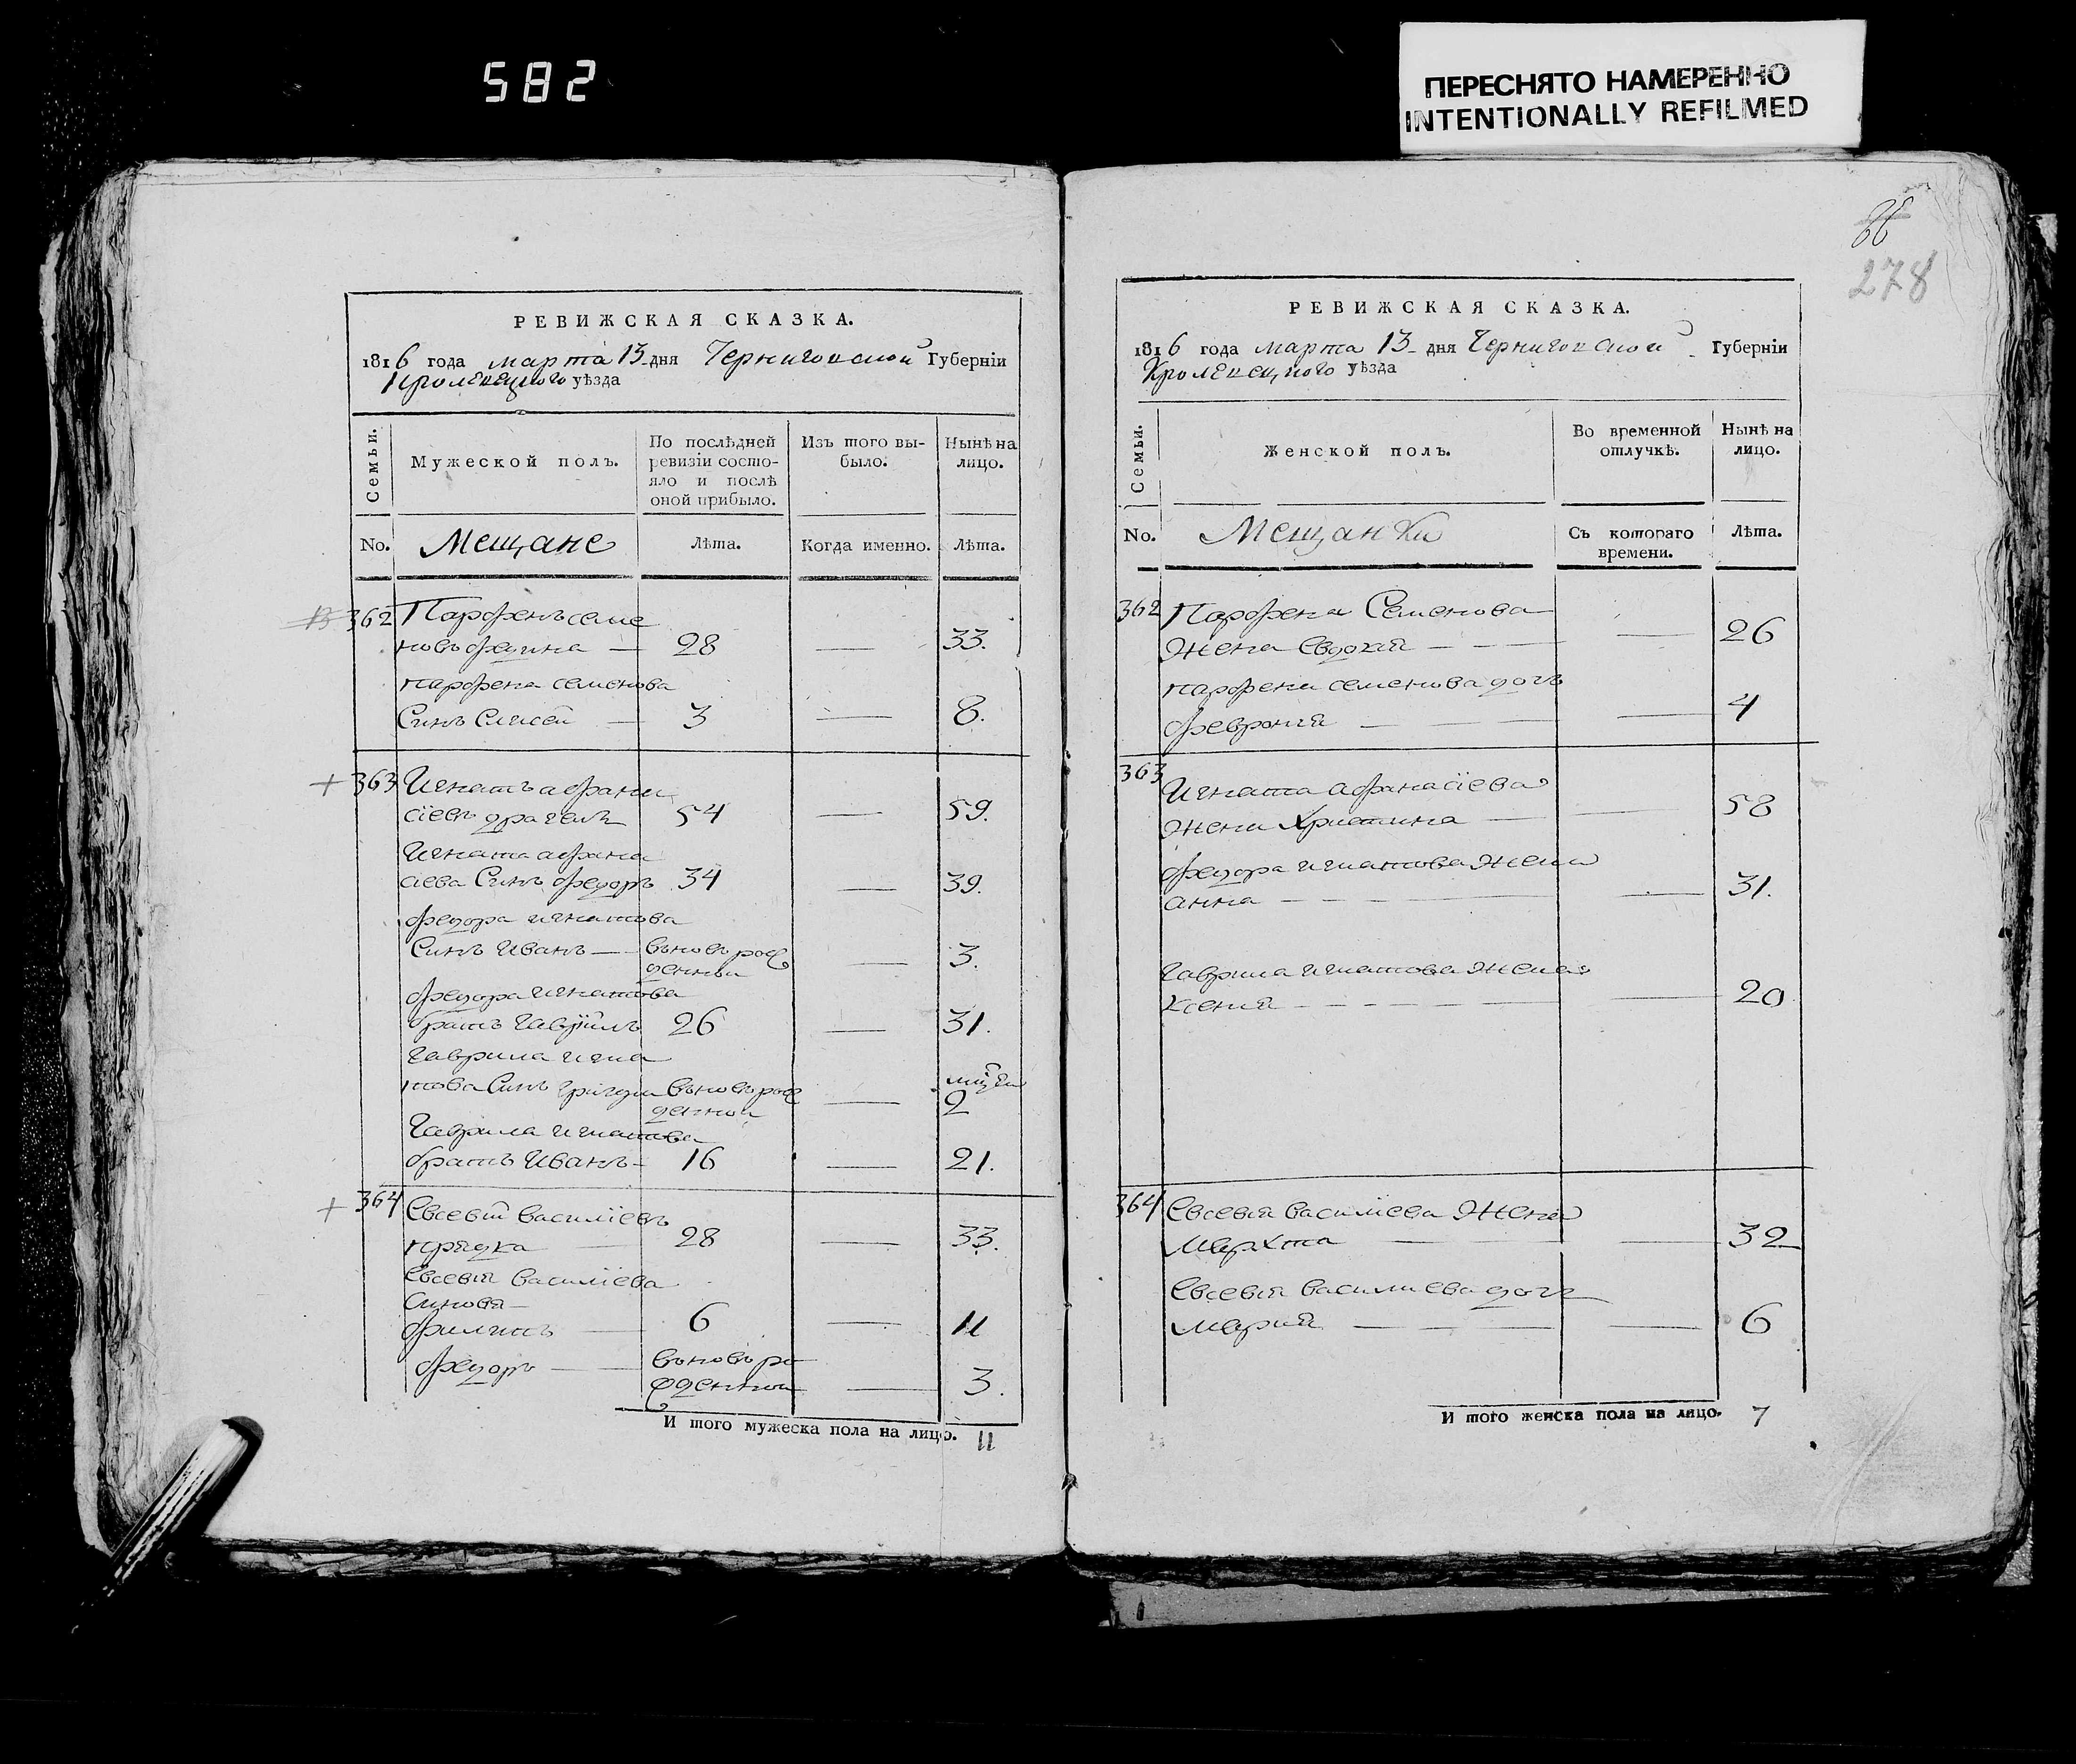 582
ПЕРЕСНЯТО НАМЕРЕННО
INTENTIONALLY REFILMED
278
РЕВИЖСКАЯ СКАЗКА.
1816 года марта 13 дня Черниговской Губернiи
Кролевецкого уѣзда
Семьи.
Мужеской полъ.
По послѣдней ревизiи состо-
яло и послѣ
оной прибыло.
Изъ того вы-
было.
Нынѣ на
лицо.
No.
Мещане
Лѣта.
Когда именно.
Лѣта.
362 Парфенъ семе
новъ 28 — 33.
парфена семенова
Синъ 3 — 8.
363 Игнатъ афана
сiевъ драгель 54 — 59.
Игната афана
сиева Синъ федоръ 34 — 39.
федора игнатова
Синъ Иванъ — вьновь рож
денный — 3.
федора игнатова
братъ Гаврiилъ 26 — 31.
Гаврила игна
това Синъ григори вьновь рож
денной — 2
Гаврила игнатова
братъ Иванъ — 16 — 21.
364 Евсевiй василiевъ
прядка 28 — 33.
Евсевiя василiева
Синовя —
филипъ — 6 — 11
федоръ — вьновь ро
жденной — 3.
И того мужеска пола на лицо. 11
РЕВИЖСКАЯ СКАЗКА.
1816 года марта 13 дня Черниговской Губернiи
Кролевецкого уѣзда
Семьи.
Женской полъ.
Во временной
отлучкѣ.
Нынѣ на
лицо.
No.
Мещанки
Съ котораго
времени.
Лѣта.
362 Парфена Семенова
жена Евдокия — — 26
парфена семенова дочь
феврония — — 4
363 Игната афанасiева
жена Христина — — 58
федора игнатова жена
анна — — 31.
Гаврила игнатова жена
Ксения — — 20
364 Евсевiя василiева жена
Мархта — — 32
Евсевiя василиева дочь
Мария — — 6
И того женска пола на лицо. 7